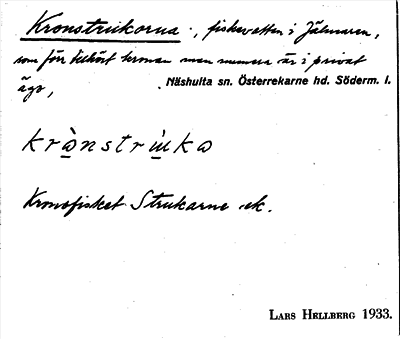 Kronstrukorna ., fiskevatten i Jälmaren,
som förr tillhört kronan men numera är i privat
ägo,
Näshulta sn. Österrekarne hd. Söderm. l.
krònstrùka
Kronofisket Strukarne ek.
LARS HELLBERG 1933.